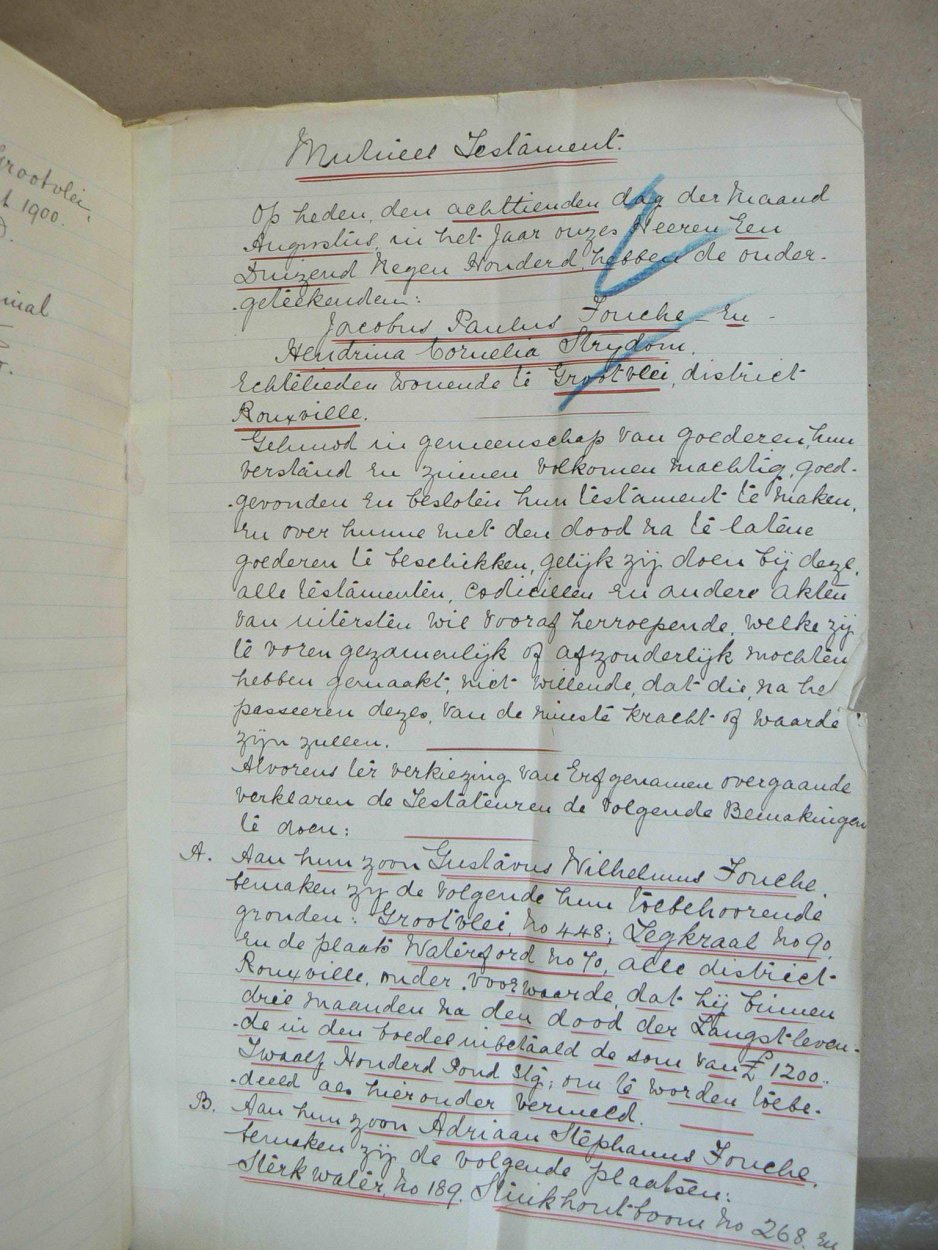 Grootvlei,
t 1900.
Mutueel Testament.
Op heden, den achttienden dag der Maand
Augustus, in het Jaar onzes Heeren Een
Duizend Negen Honderd, hebben de onder-
-geteekenden:
Jacobus Paulus Fouche - En -
Hendrina Cornelia Strydom,
Echtelieden wonende te Grootvlei, district
Rouxville.
Gehuwd in gemeenschap van goederen, hun
verstand en zinnen volkomen machtig, goed-
-gevonden en besloten hun testament te maken,
en over hunne met den dood na te latene
goederen te beschikken, gelijk zij doen bij deze,
alle testamenten, codicillen en andere akten
van uitersten wil vooraf herroepende, welke zij
te voren gezamenlijk of afzonderlijk mochten
hebben gemaakt, niet willende, dat die, na he
passeeren dezes, van de minste kracht of waarde
zijn zullen.
Alvorens ter verkiezing van Erfgenamen overgaande
verklaren de Testateuren de volgende Bemakingen
te doen:
A. Aan hun zoon Gustavus Wilhelmus Fouche,
bemaken zij de volgende hun toebehoorende
gronden: Grootvlei, No 448; Legkraal No 90,
en de plaats Waterford No 70, alle district
Rouxville, onder voorwaarde, dat hij binnen
drie maanden na den dood der Langst-leven-
-de in den boedel inbetaald de som van £1200.
Twaalf Honderd Pond Stg; om te worden toebe-
-deeld als hieronder vermeld.
B. Aan hun zoon Adriaan Stephanus Fouche,
bemaken zij de volgende plaatsen:
Sterkwater, No 189, Stinkhoutboom No 268, En